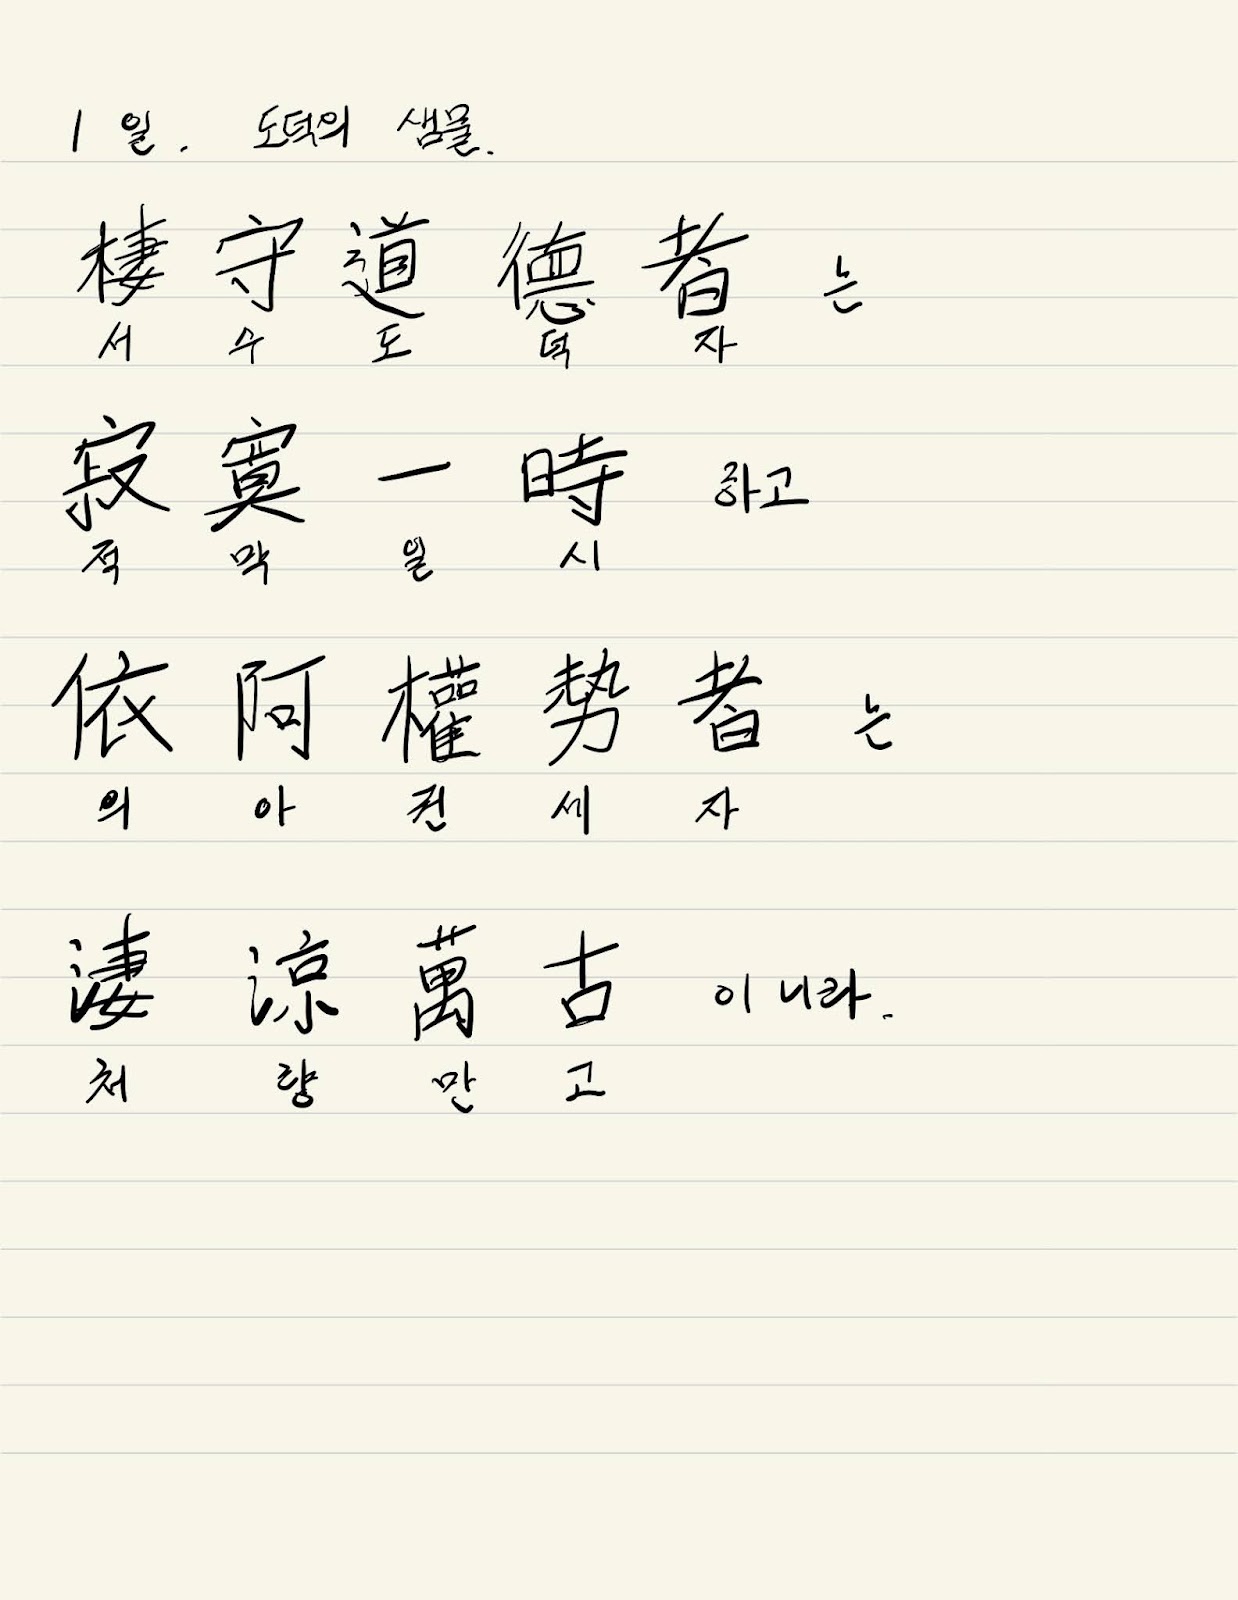 1일. 도덕의 샘물.
棲守道德者 는
서 수 도 덕 자
寂寞一時 하고
적 막 일 시
依阿權勢者 는
의 아 권 세 자
淒涼萬古 이니라.
처 량 만 고